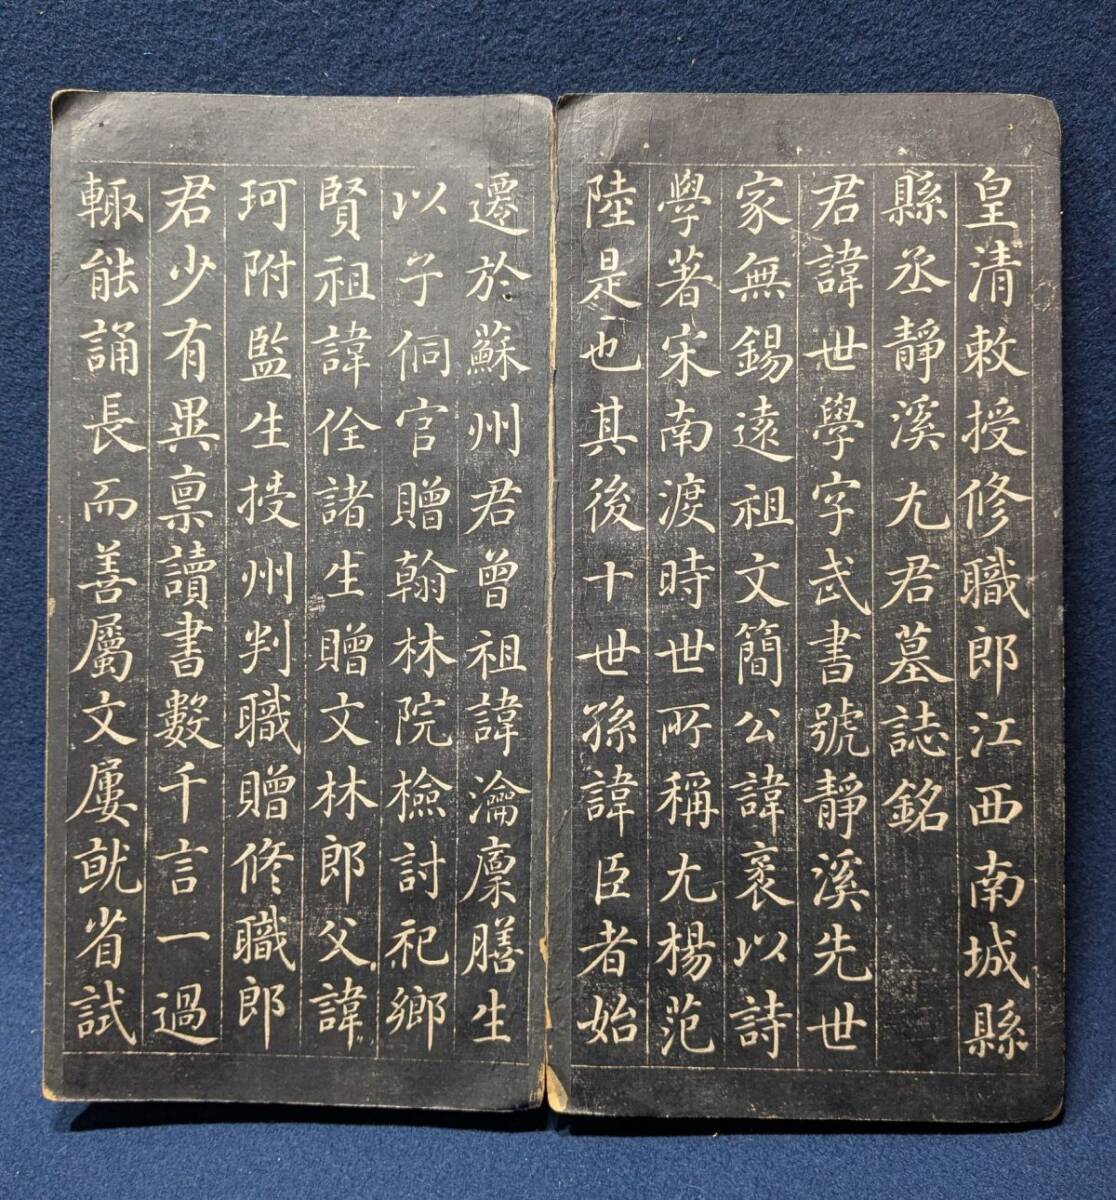 皇清敕授修職郎江西南城縣
縣丞靜溪尤君墓誌銘
君諱世學字武書號靜溪先世
家無錫遠祖文簡公諱袤以詩
學著宋南渡時世所稱尤楊范
陸是也其後十世孫諱臣者始
遷於蘇州君曾祖諱瀹廩膳生
以子侗官贈翰林院檢討祀鄉
賢祖諱佺諸生贈文林郎父諱
珂附監生授州判職贈修職郎
君少有異稟讀書數千言一過
輙能誦長而善屬文屢就省試